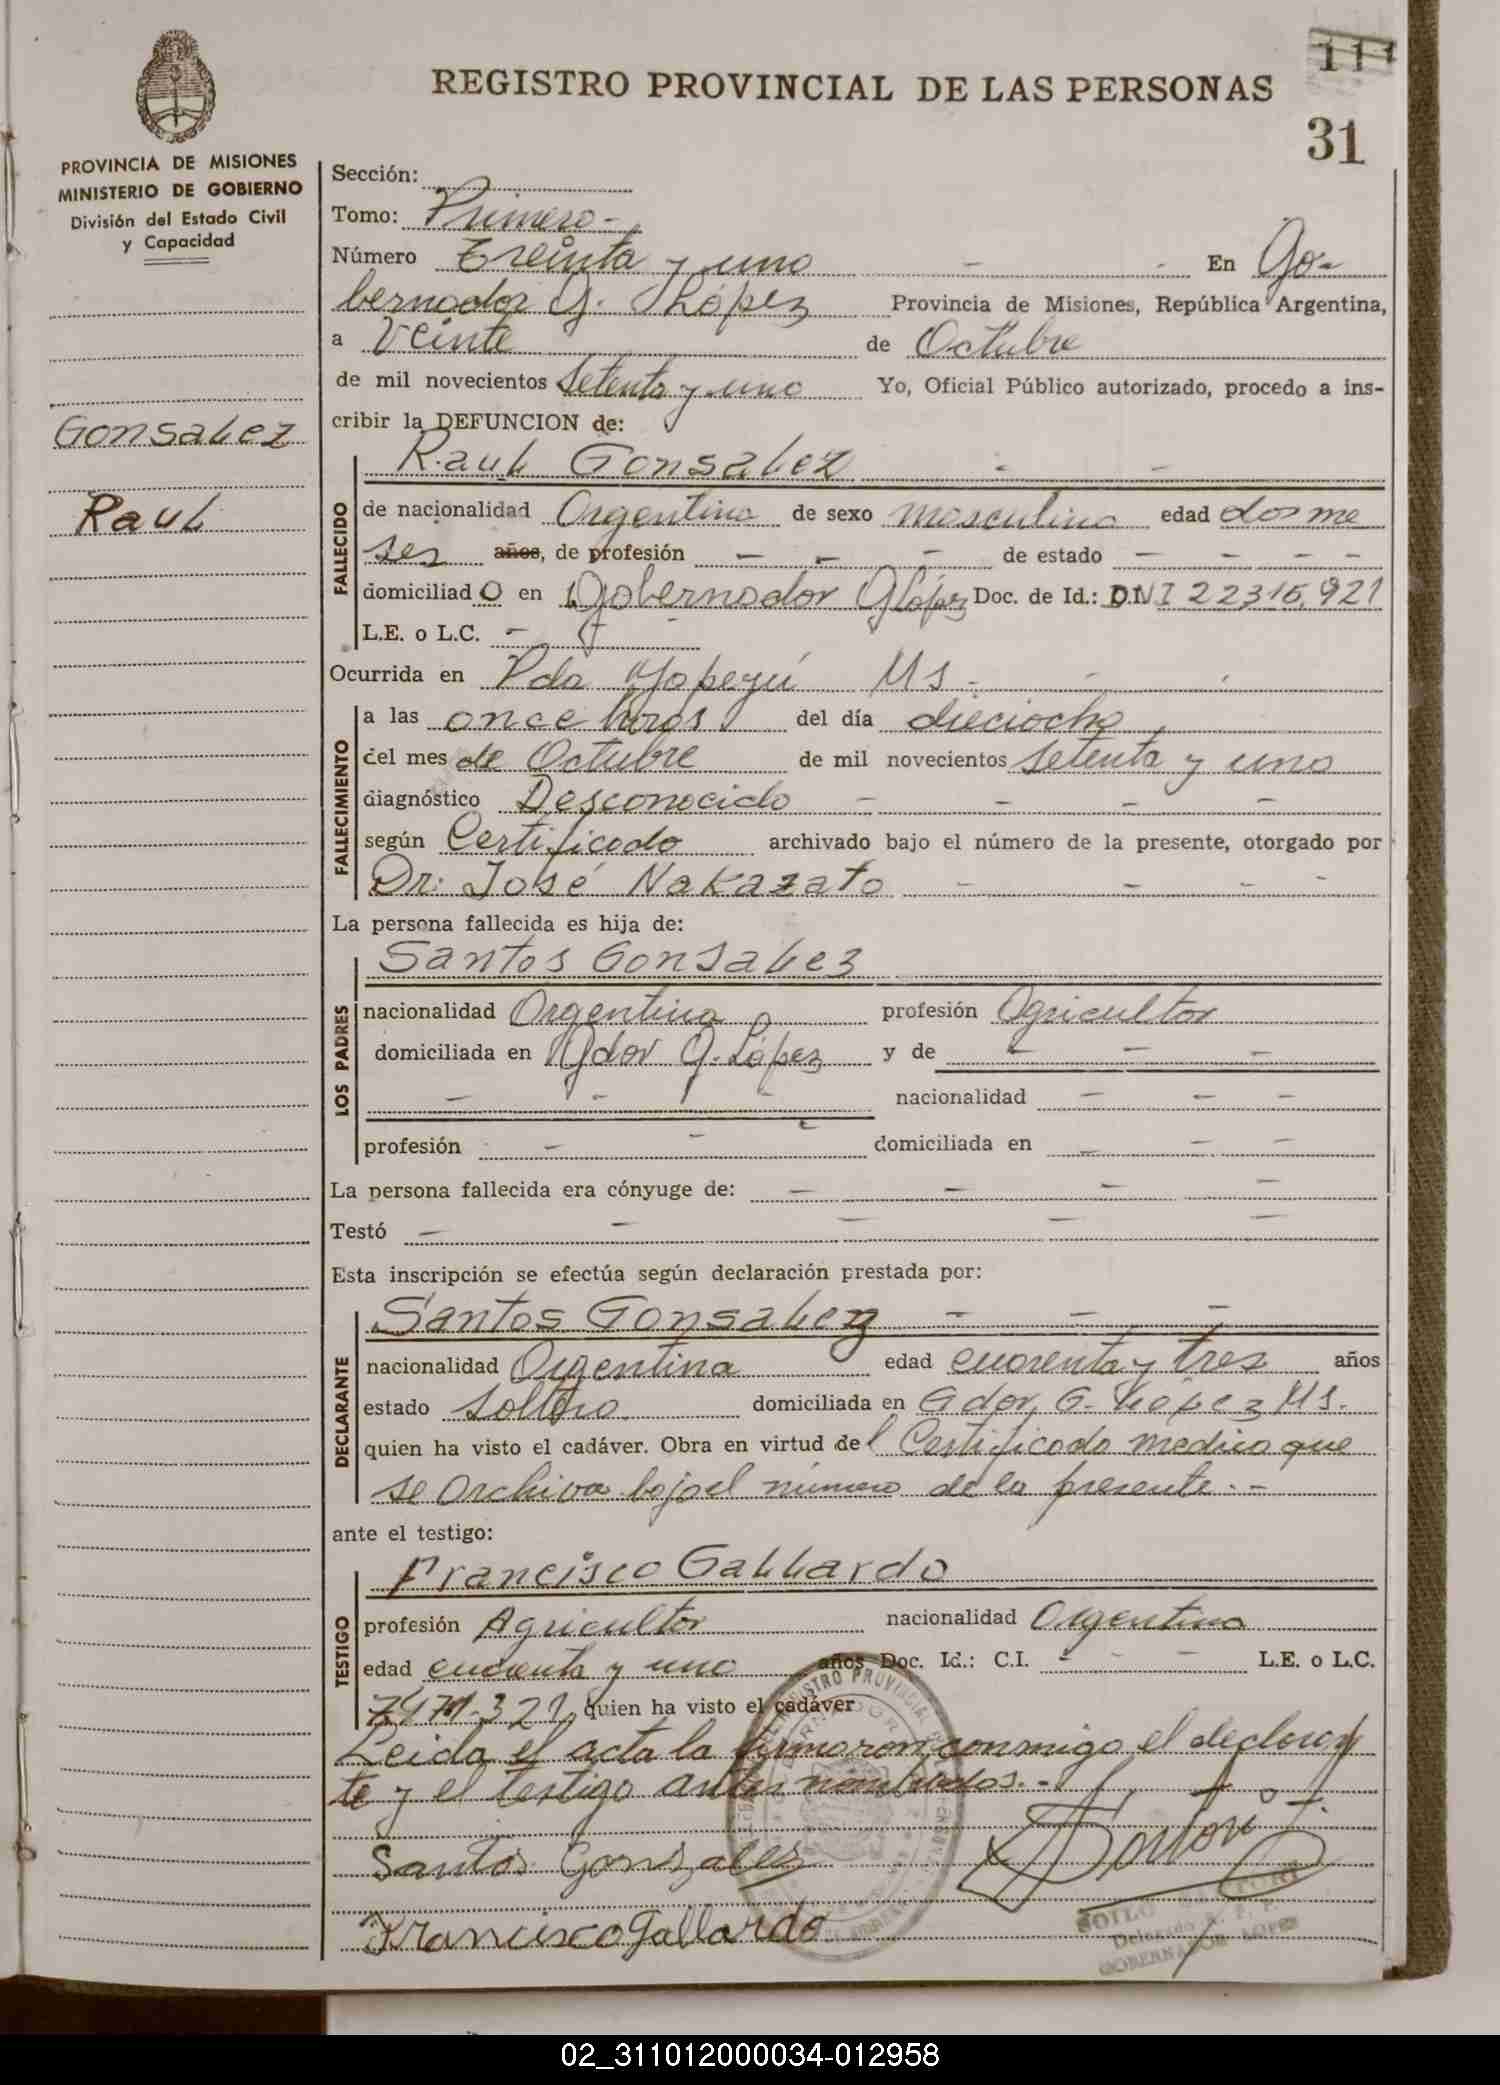 111
31
REGISTRO PROVINCIAL DE LAS PERSONAS
PROVINCIA DE MISIONES
MINISTERIO DE GOBIERNO
División del Estado Civil
y Capacidad
Gonsalez
Raul
Sección:
Tomo: Primero -
Número Treinta y uno - - En Go-
bernador G. López Provincia de Misiones, República Argentina,
a Veinte de Octubre
de mil novecientos setenta y uno Yo, Oficial Público autorizado, procedo a ins-
cribir la DEFUNCION de:
Raul Gonsalez - -
FALLECIDO
de nacionalidad Argentina de sexo masculino edad dos me
ses años, de profesión - - - de estado - - - -
domiciliado en Gobernador G López Doc. de Id.: DNI 22.316.921
L.E. o L.C. -
Ocurrida en Pda Yapeyú Ms - - -
FALLECIMIENTO
a las once horas del día dieciocho
del mes de Octubre de mil novecientos setenta y uno
diagnóstico Desconocido - - - -
según Certificado archivado bajo el número de la presente, otorgado por
Dr. José Nakazato - - - -
La persona fallecida es hija de:
Santos Gonsalez
LOS PADRES
nacionalidad Argentina profesión Agricultor
domiciliada en Gdor G. López y de - - -
- - - nacionalidad - - -
profesión - - domiciliada en - - -
La persona fallecida era cónyuge de: - - - -
Testó - - - - -
Esta inscripción se efectúa según declaración prestada por:
Santos Gonsalez - - -
DECLARANTE
nacionalidad Argentina edad cuarenta y tres años
estado soltero domiciliada en Gdor, G. López Ms.
quien ha visto el cadáver. Obra en virtud del Certificado medico que
se archiva bajo el número de la presente. -
ante el testigo:
Francisco Gallardo
TESTIGO
profesión Agricultor nacionalidad Argentina
edad cuarenta y uno años Doc. Id.: C.I. - - - L.E. o L.C.
7471.321, quien ha visto el cadáver
Leida el acta la firmaron conmigo el declaran
te y el testigo antes nombrados. -
Santos Gonzales
Francisco Gallardo
Delegado R. P. P.
GOBERNADOR LOPEZ
02_311012000034-012958